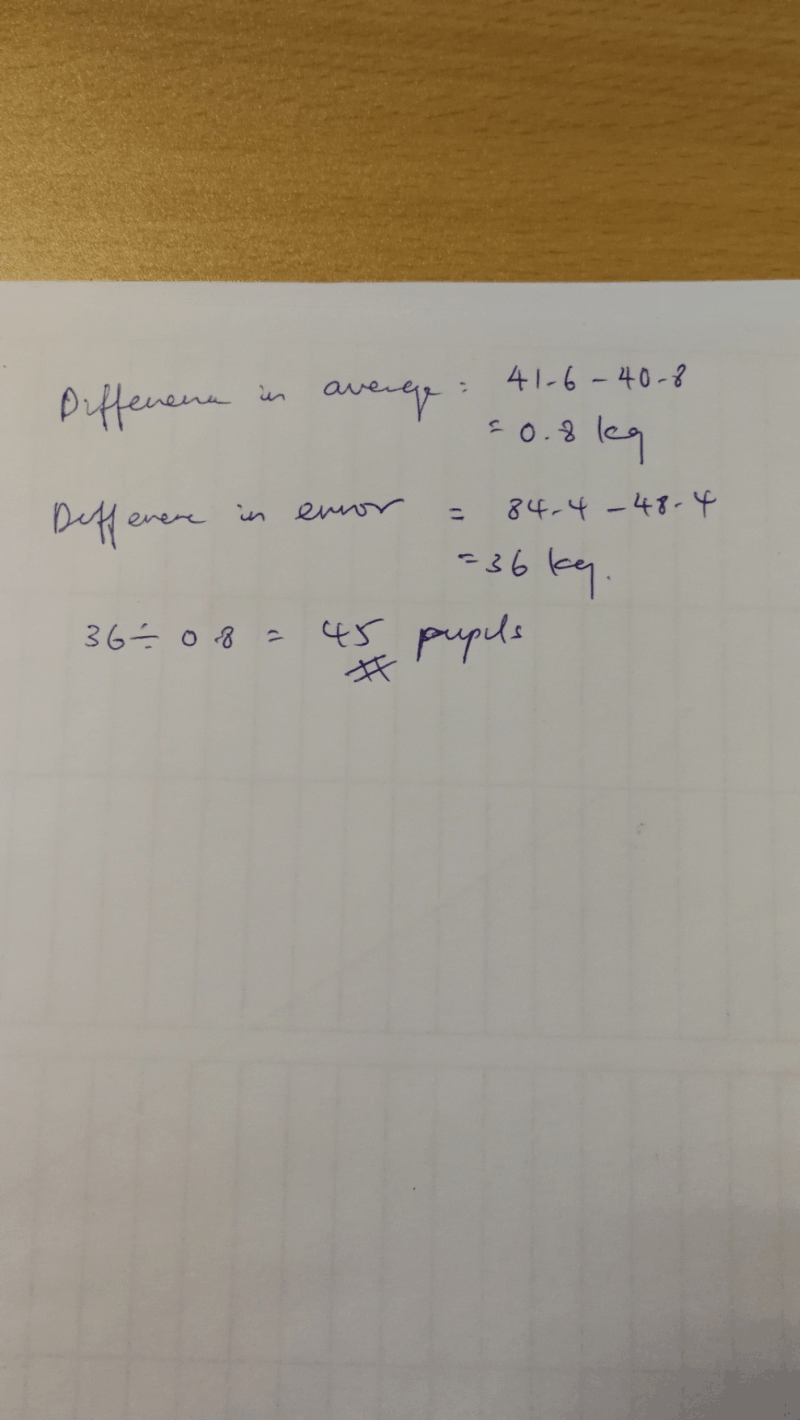 Difference in average = 41.6 - 40.8
= 0.8 kg
Difference in error = 84.4 - 48.4
= 36 kg.
36 ÷ 0.8 = 45 pupils
#